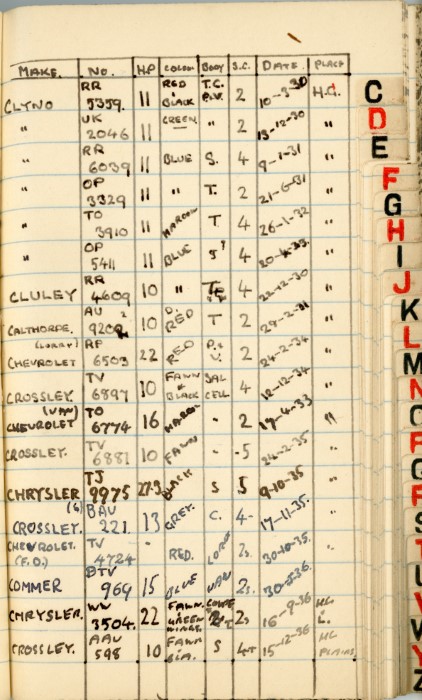 MAKE. NO. HP COLOUR BODY S.C. DATE. PLACE
CLYNO RR 5359. 11 RED & BLACK T.C. 2 10-3-30 H.G.
" UK 2046 11 GREEN " 2 13-12-30 "
" RR 6039 11 BLUE S. 4 9-1-31 "
" OP 3329 11 " T. 2 21-6-31 "
" TO 3910 11 MAROON T 4 26-1-32 "
" OP 5411 11 BLUE 4 "
CLULEY RR 4609 10 " 4 22-12-30 "
CALTHORPE. AU 10 RED T 2 "
(LORRY) CHEVROLET RP 6503 22 RED 2 24-2-34 "
CROSSLEY. TV 6897 10 FAWN & BLACK SAL CELL 4 12-12-34 "
(VAN) CHEVROLET TO 6774 16 MAROON " 2 19-4-33 "
CROSSLEY. TV 6881 10 FAWN " 5 24-2-35 "
CHRYSLER TJ 9975 27.3 BLACK S 5 9-10-35 "
(6) CROSSLEY. BAU 221. 13 GREY. C. 4 17-11-35. "
CHEVROLET. (F.O.) TV 4724 - RED. 2s 30-10-35. "
COMMER BTV 969 15 BLUE VAN 2s. 30-5-36. "
CHRYSLER. WW 3504. 22 FAWN. GREEN WINGS. COUPE 16-9-36
CROSSLEY. AAU 598 10 FAWN S 15-12-36 PLAINS
C
D
E
F
G
H
I
J
K
L
M
N
O
P
Q
R
S
T
U
V
W
Y
Z